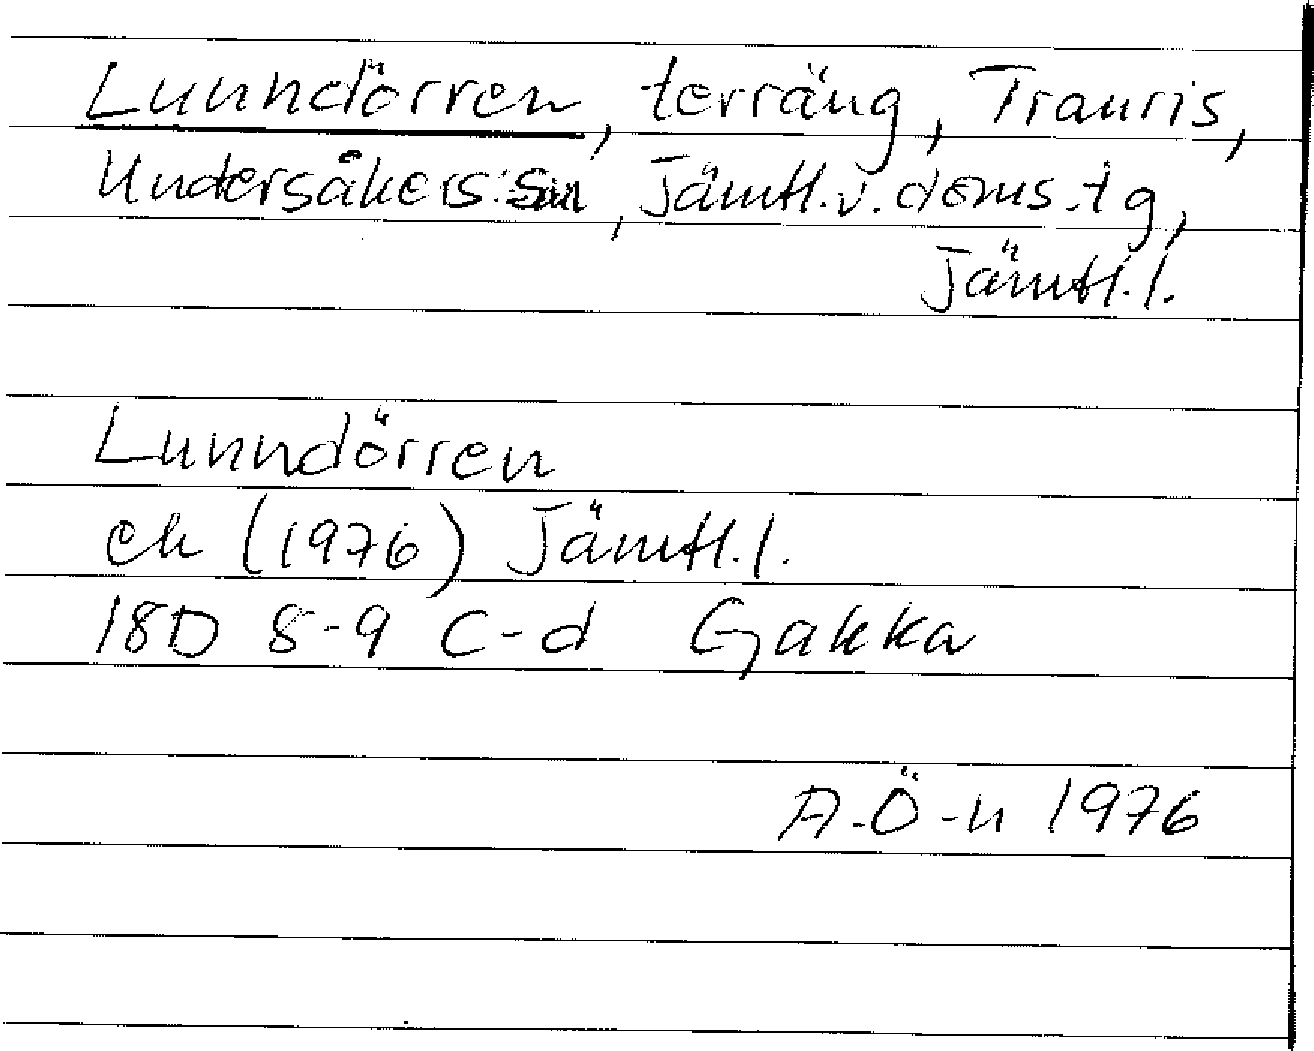 Lunndörren, terräng, Tranris,
Undersåkers sn, Jämtl. v. doms. tg,
Jämtl. l.
Lunndörren
ek (1976) Jämtl. l.
18D 8-9 c-d Gakka
A-Ö-n 1976